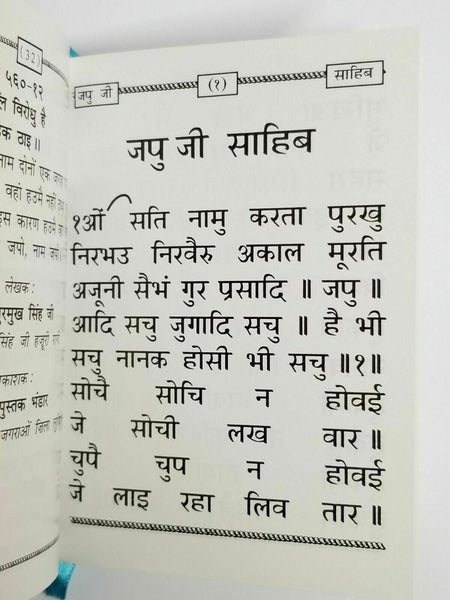 (32)
५६०-१२
विरोधु है
ठाइ ॥
नाम दोनों एक
वहां हउमै नहीं
इस कारण हउमै
जपो, नाम
लेखक:
गुरमुख सिंह जी
सिंह जी हजूरी
पुस्तक भंडार
जगराओं
जपु जी
(१)
साहिब
जपु जी साहिब
१ओं सति नामु करता पुरखु
निरभउ निरवैरु अकाल मूरति
अजूनी सैभं गुर प्रसादि ॥ जपु ॥
आदि सचु जुगादि सचु ॥ है भी
सचु नानक होसी भी सचु ॥१॥
सोचै सोचि न होवई
जे सोची लख वार ॥
चुपै चुप न होवई
जे लाइ रहा लिव तार ॥